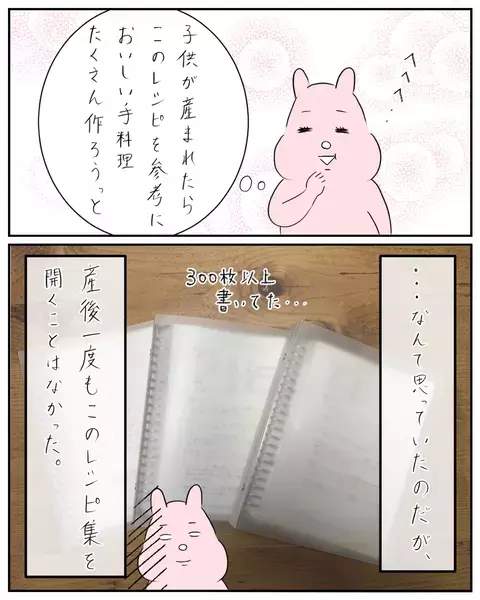 子供が産まれたら
このレシピを参考に
おいしい手料理
たくさん作ろうっと
フフフ...
・・・なんて思っていたのだが、
300枚以上
書いてた・・・
産後一度もこのレシピ集を
開くことはなかった。